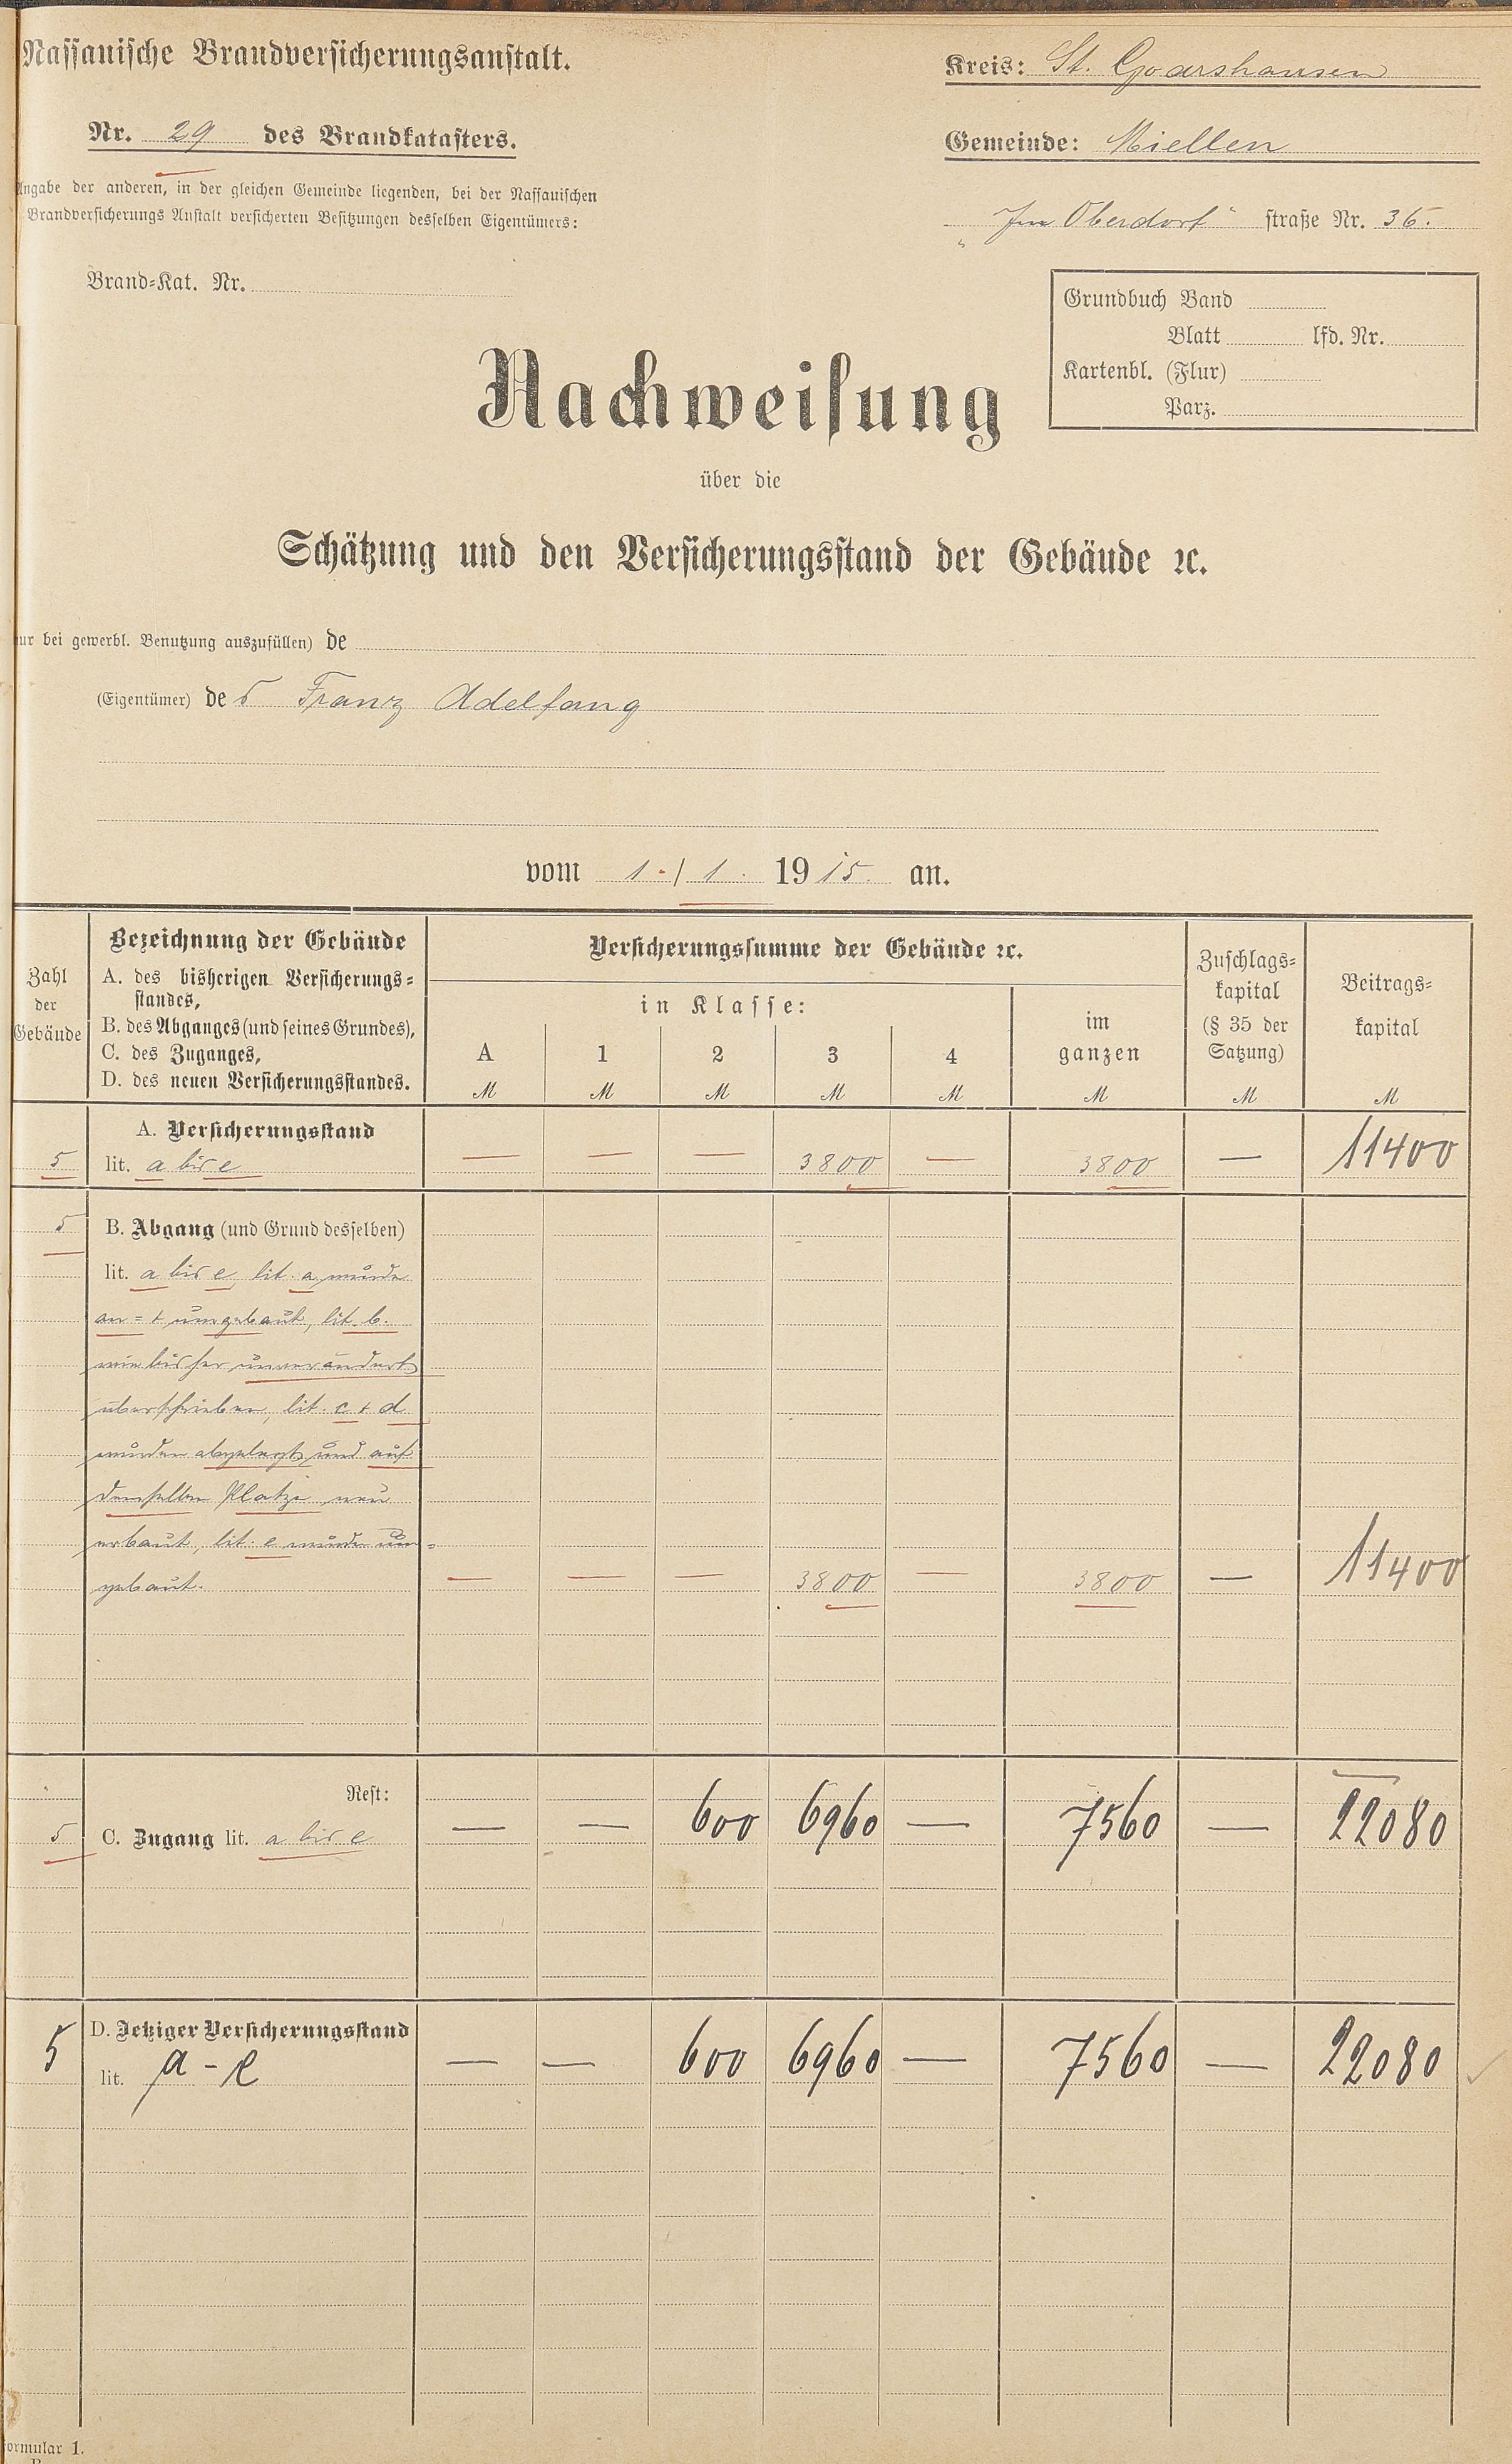 Nassauische Brandversicherungsanstalt.
Kreis: St. Goarshausen
Nr. 29 des Brandkatasters.
Gemeinde: Miellen
Angabe der anderen, in der gleichen Gemeinde liegenden, bei der Nassauischen
Brandversicherungs Anstalt versicherten Besitzungen desselben Eigentümers:
„Im Oberdorf“ straße Nr. 36.
Brand-Kat. Nr.
Grundbuch Band
Blatt lfd. Nr.
Kartenbl. (Flur)
Parz.
Nachweisung
über die
Schätzung und den Versicherungsstand der Gebäude ꝛc.
ur bei gewerbl. Benutzung auszufüllen) de
(Eigentümer) des Franz Adelfang
vom 1./1. 1915. an.
Zahl der Gebäude
Bezeichnung der Gebäude
A. des bisherigen Versicherungs-
standes,
B. des Abganges (und seines Grundes),
C. des Zuganges,
D. des neuen Versicherungsstandes.
Versicherungssumme der Gebäude ꝛc.
in Klasse:
A 1 2 3 4
im ganzen
Zuschlags-
kapital
(§ 35 der
Satzung)
Beitrags-
kapital
M M M M M M M M
A. Versicherungsstand
5 lit. a bis e — — — 3800 — 3800 — 11400
5 B. Abgang (und Grund desselben)
lit. a bis e, lit. a wurde
an= + umgebaut, lit. b.
wie bisher unverändert
überschrieben, lit. c + d
wurden abgelegt und auf
demselben Platze neu
erbaut, lit. e wurde um-
gebaut. — — — 3800 — 3800 — 11400
Rest:
5 C. Zugang lit. a bis e — — 600 6960 — 7560 — 22080
D. Jetziger Versicherungsstand
5 lit. a - e — — 600 6960 — 7560 — 22080
ormular 1.